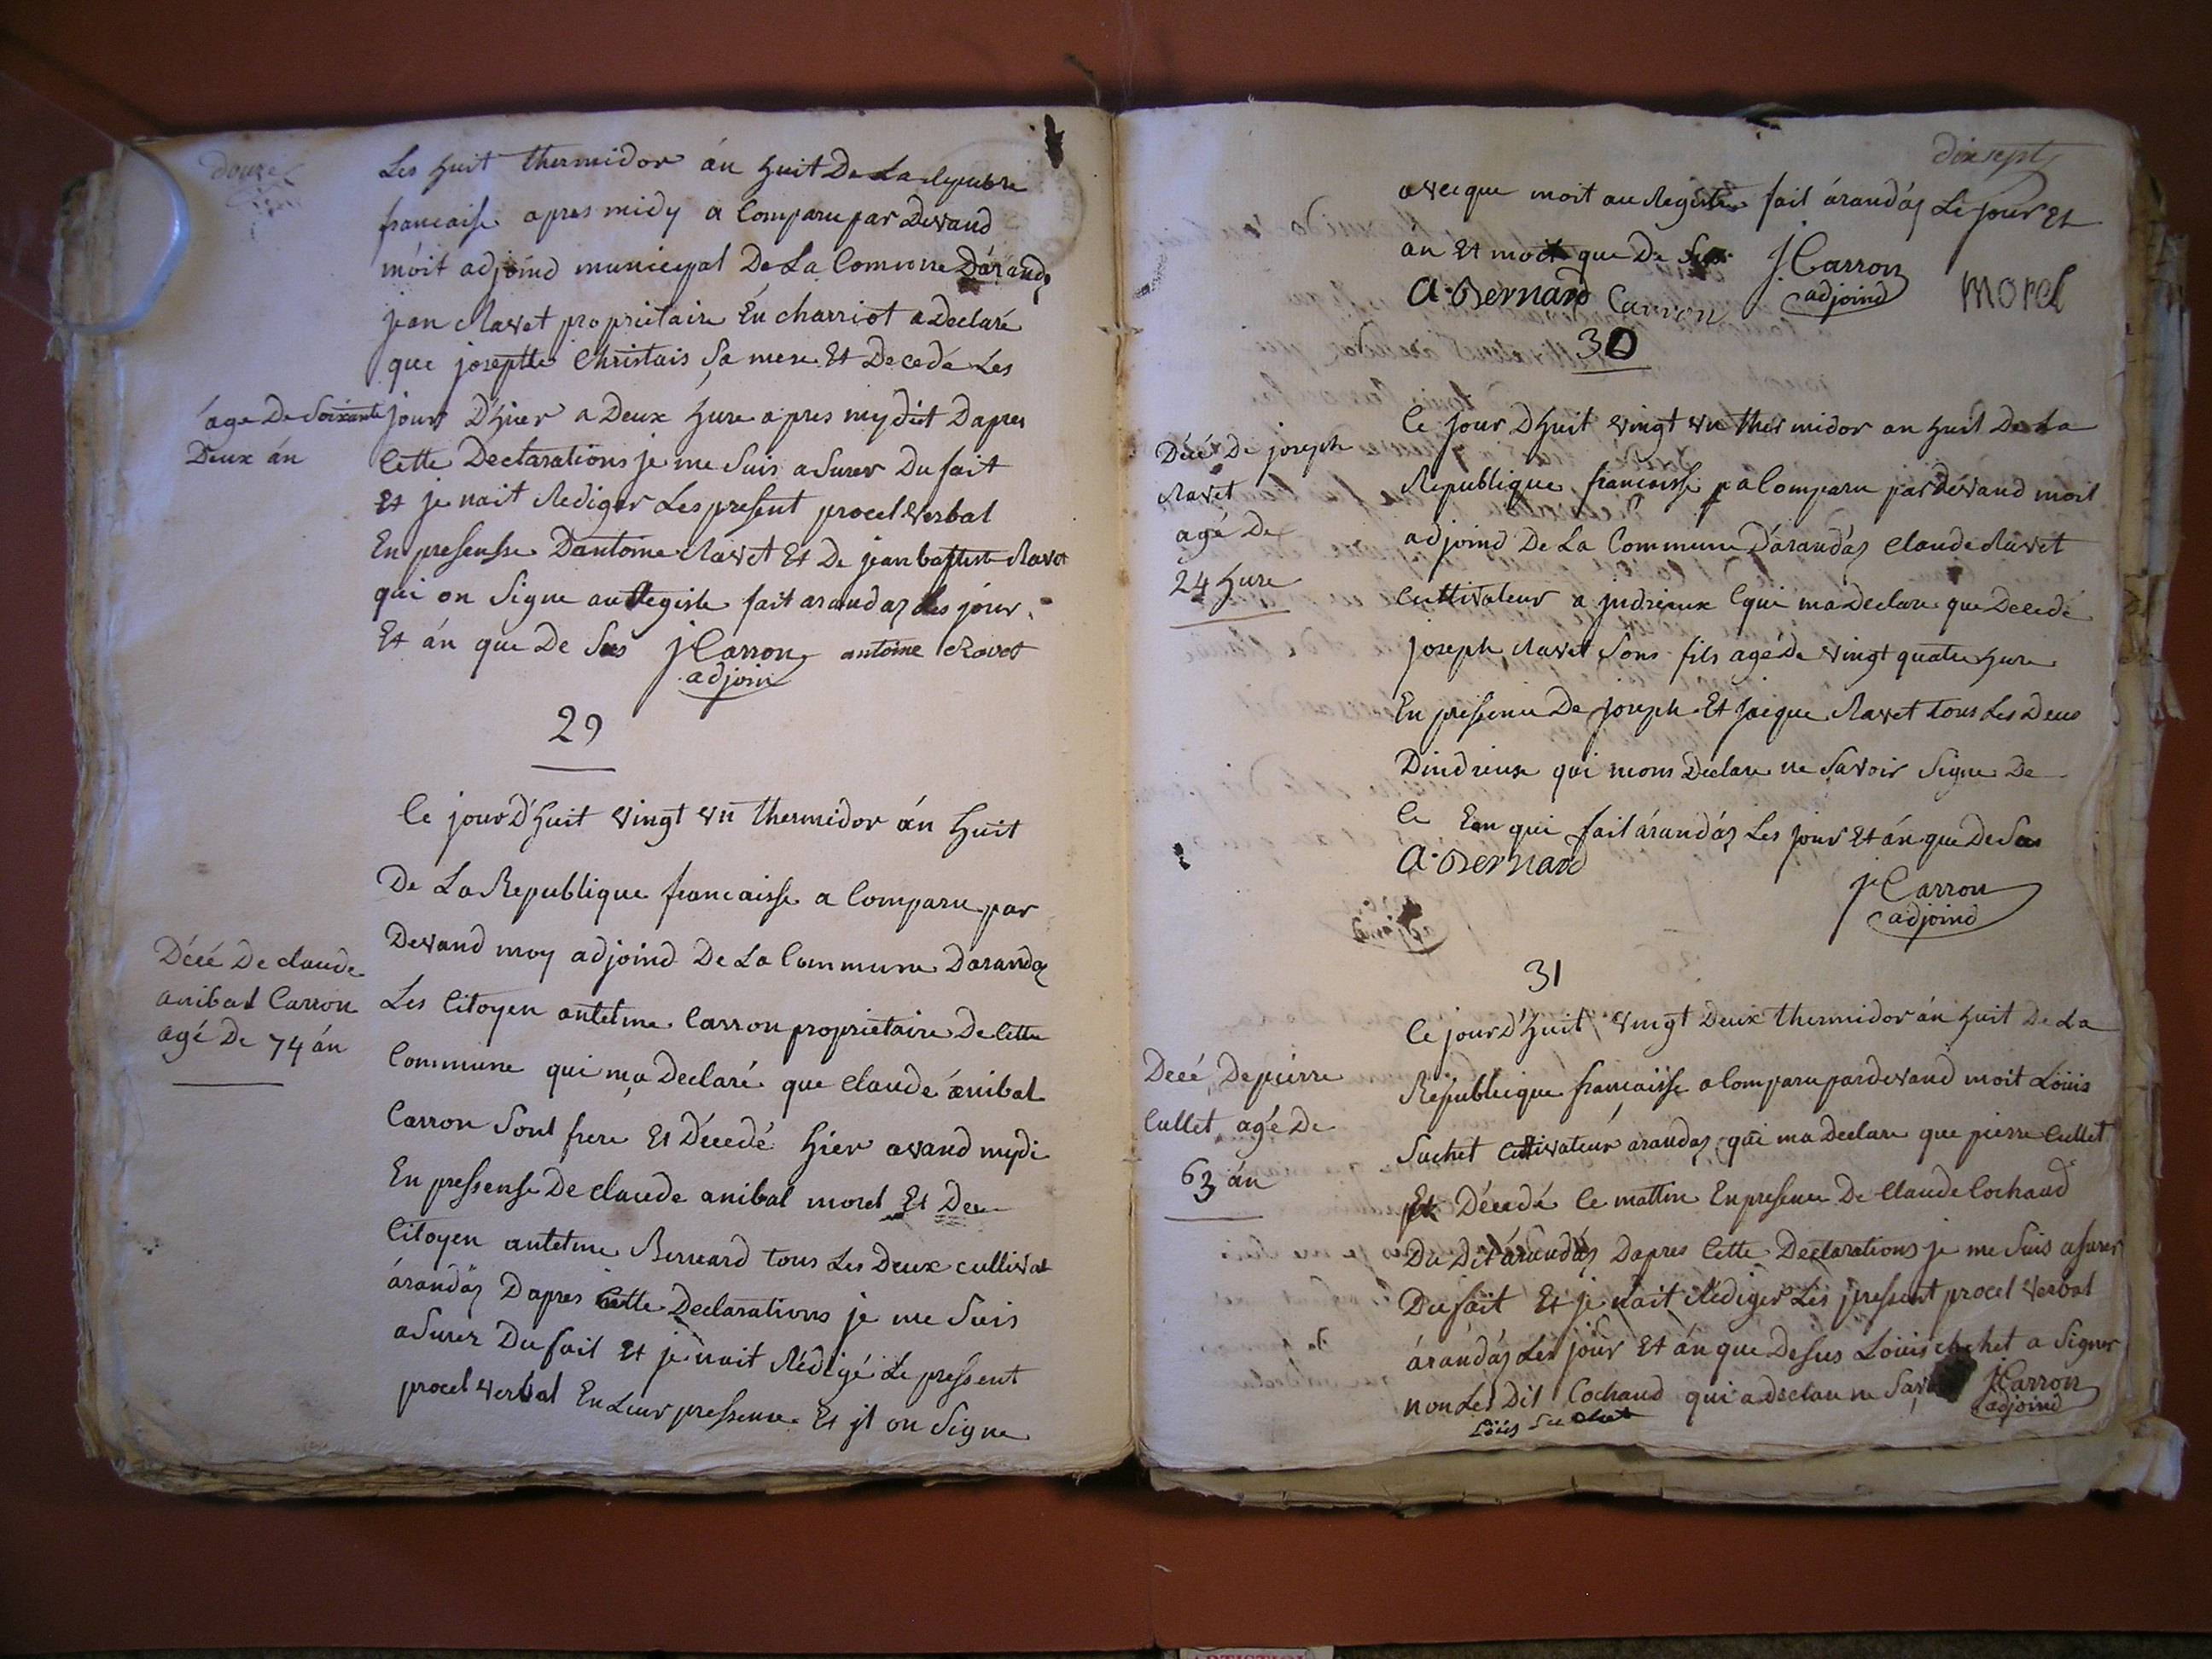 douze
Les huit thermidor án huit De La Republre
francaisse apres midy a Comparu par Devand
móit adjoind municipal De La Comune Dárandaz
jean Ravet propriétaire En charriot a Declaré
que josephte Christais Sa mere Et Decedé Les
áge De Soixante
Deux án
jour D'hier a Deux hure apres mydit Dapres
Cette Declarations je me Suis asurer Du fait
Et je nait Rediger Les present procel verbal
En presensse Dantoine Ravet Et De jean baptiste Ravet
qui on Signe au Registe fait arandaz Les jour
Et án que De Sus JCarron antoine Ravet
adjoin
29
Ce jourD'huit vingt vn thermidor án huit
De La Republique francaisse a Comparu par
Devand moy adjoind De La Commune Darandaz
Décé De claude
anibal Carron
agé De 74 án
Les Citoyen antelme Carron propriétaire De Cette
Commune qui ma Declaré que Claude ánibal
Carron Sont frere Et Décedé hier avand mydi
En pressensse De claude anibal morel Et De
Citoyen antelme Bernard tous Les Deux cultivat
árandáz Dapres Cette Declarations je me Suis
aSurer Du fait Et je nait Rédigé Le pressent
procel verbal En Leur pressence Et jl on Signe
dixsept
avecque moit au Registre fait árandáz Le jour Et
an Et moit que De Sus JCarron
adjoind
morel
A. Bernard Carron
30
Décé De joseph
Ravet
agé De
24 hure
Ce jour Dhuit vingt vn thermidor an huit De La
Republique francaisse a Comparu par dévand moit
adjoind De La Commune Dárandáz Claude Ravet
Cultivateur a jndrieux qui ma Declare que Decedé
joseph Ravet Sons fils agé de vingt quatre hure
En pressence De joseph Et jacque Ravet tous Les Deus
Dindrieux qui mons Declare ne Savoir Signe De
Ce Enqui fait árandáz Les jour Et án que De Sus
A. Bernard
JCarron
adjoind
31
Décé De piérre
Cullet agé De
63 án
Ce jourD'huit vingt Deux thermidor án huit De La
Républicque francaisse a Comparu pardevand moit Loüis
Suchet Cultivateur arandaz qui ma Declare que pierre Cullet
Et Décedé Ce mattin En presence De Claude Cochaud
Du Dit árandáz Dapres Cette Declarations je me Suis asurer
Du fait Et je nait Rediger Les pressent procel verbal
árandáz Les jour Et án que Desus Loüis Suchet a Signer
non Les Dit Cochaud qui a declare ne JCarron
adjoind
Loüis Suchet